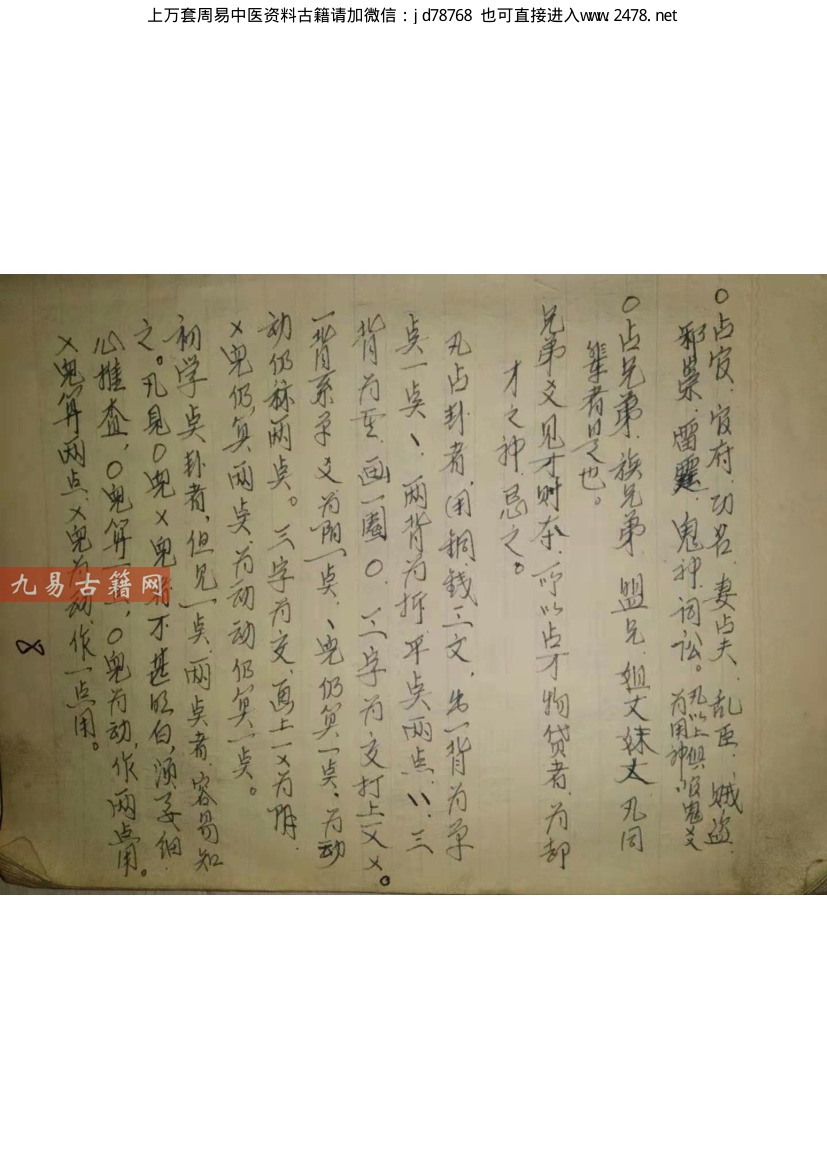 上万套周易中医资料古籍请加微信：jd78768 也可直接进入www.2478.net
○占官、官府、功名、妻占夫、乱臣、贼盗、
邪祟、雷霆、鬼神、词讼。凡以上俱官鬼爻
为用神。
○占兄弟、族兄弟、盟兄、姐丈妹丈、凡同
辈者是也。
兄弟爻见才财夺，所以占才物贷者，为却
才之神，忌之。
凡占卦者，用铜钱三文，出一背为单
点一点、，两背为拆 平点两点、、，三
背为重，画一圈○，三字为交打上一乂×。
一背系单爻为阳一点、兑仍算一点，为动
动仍称两点。三字为交，画上一×为阴，
×兑仍算两点，为动动仍算一点。
初学点卦者，但见一点、两点者，容易知
之。凡见○兑×兑 不甚明白，须要细
心推查，○兑算一，○兑为动，作两点用。
×兑算两点，×兑为动，作一点用。
九易古籍网
8